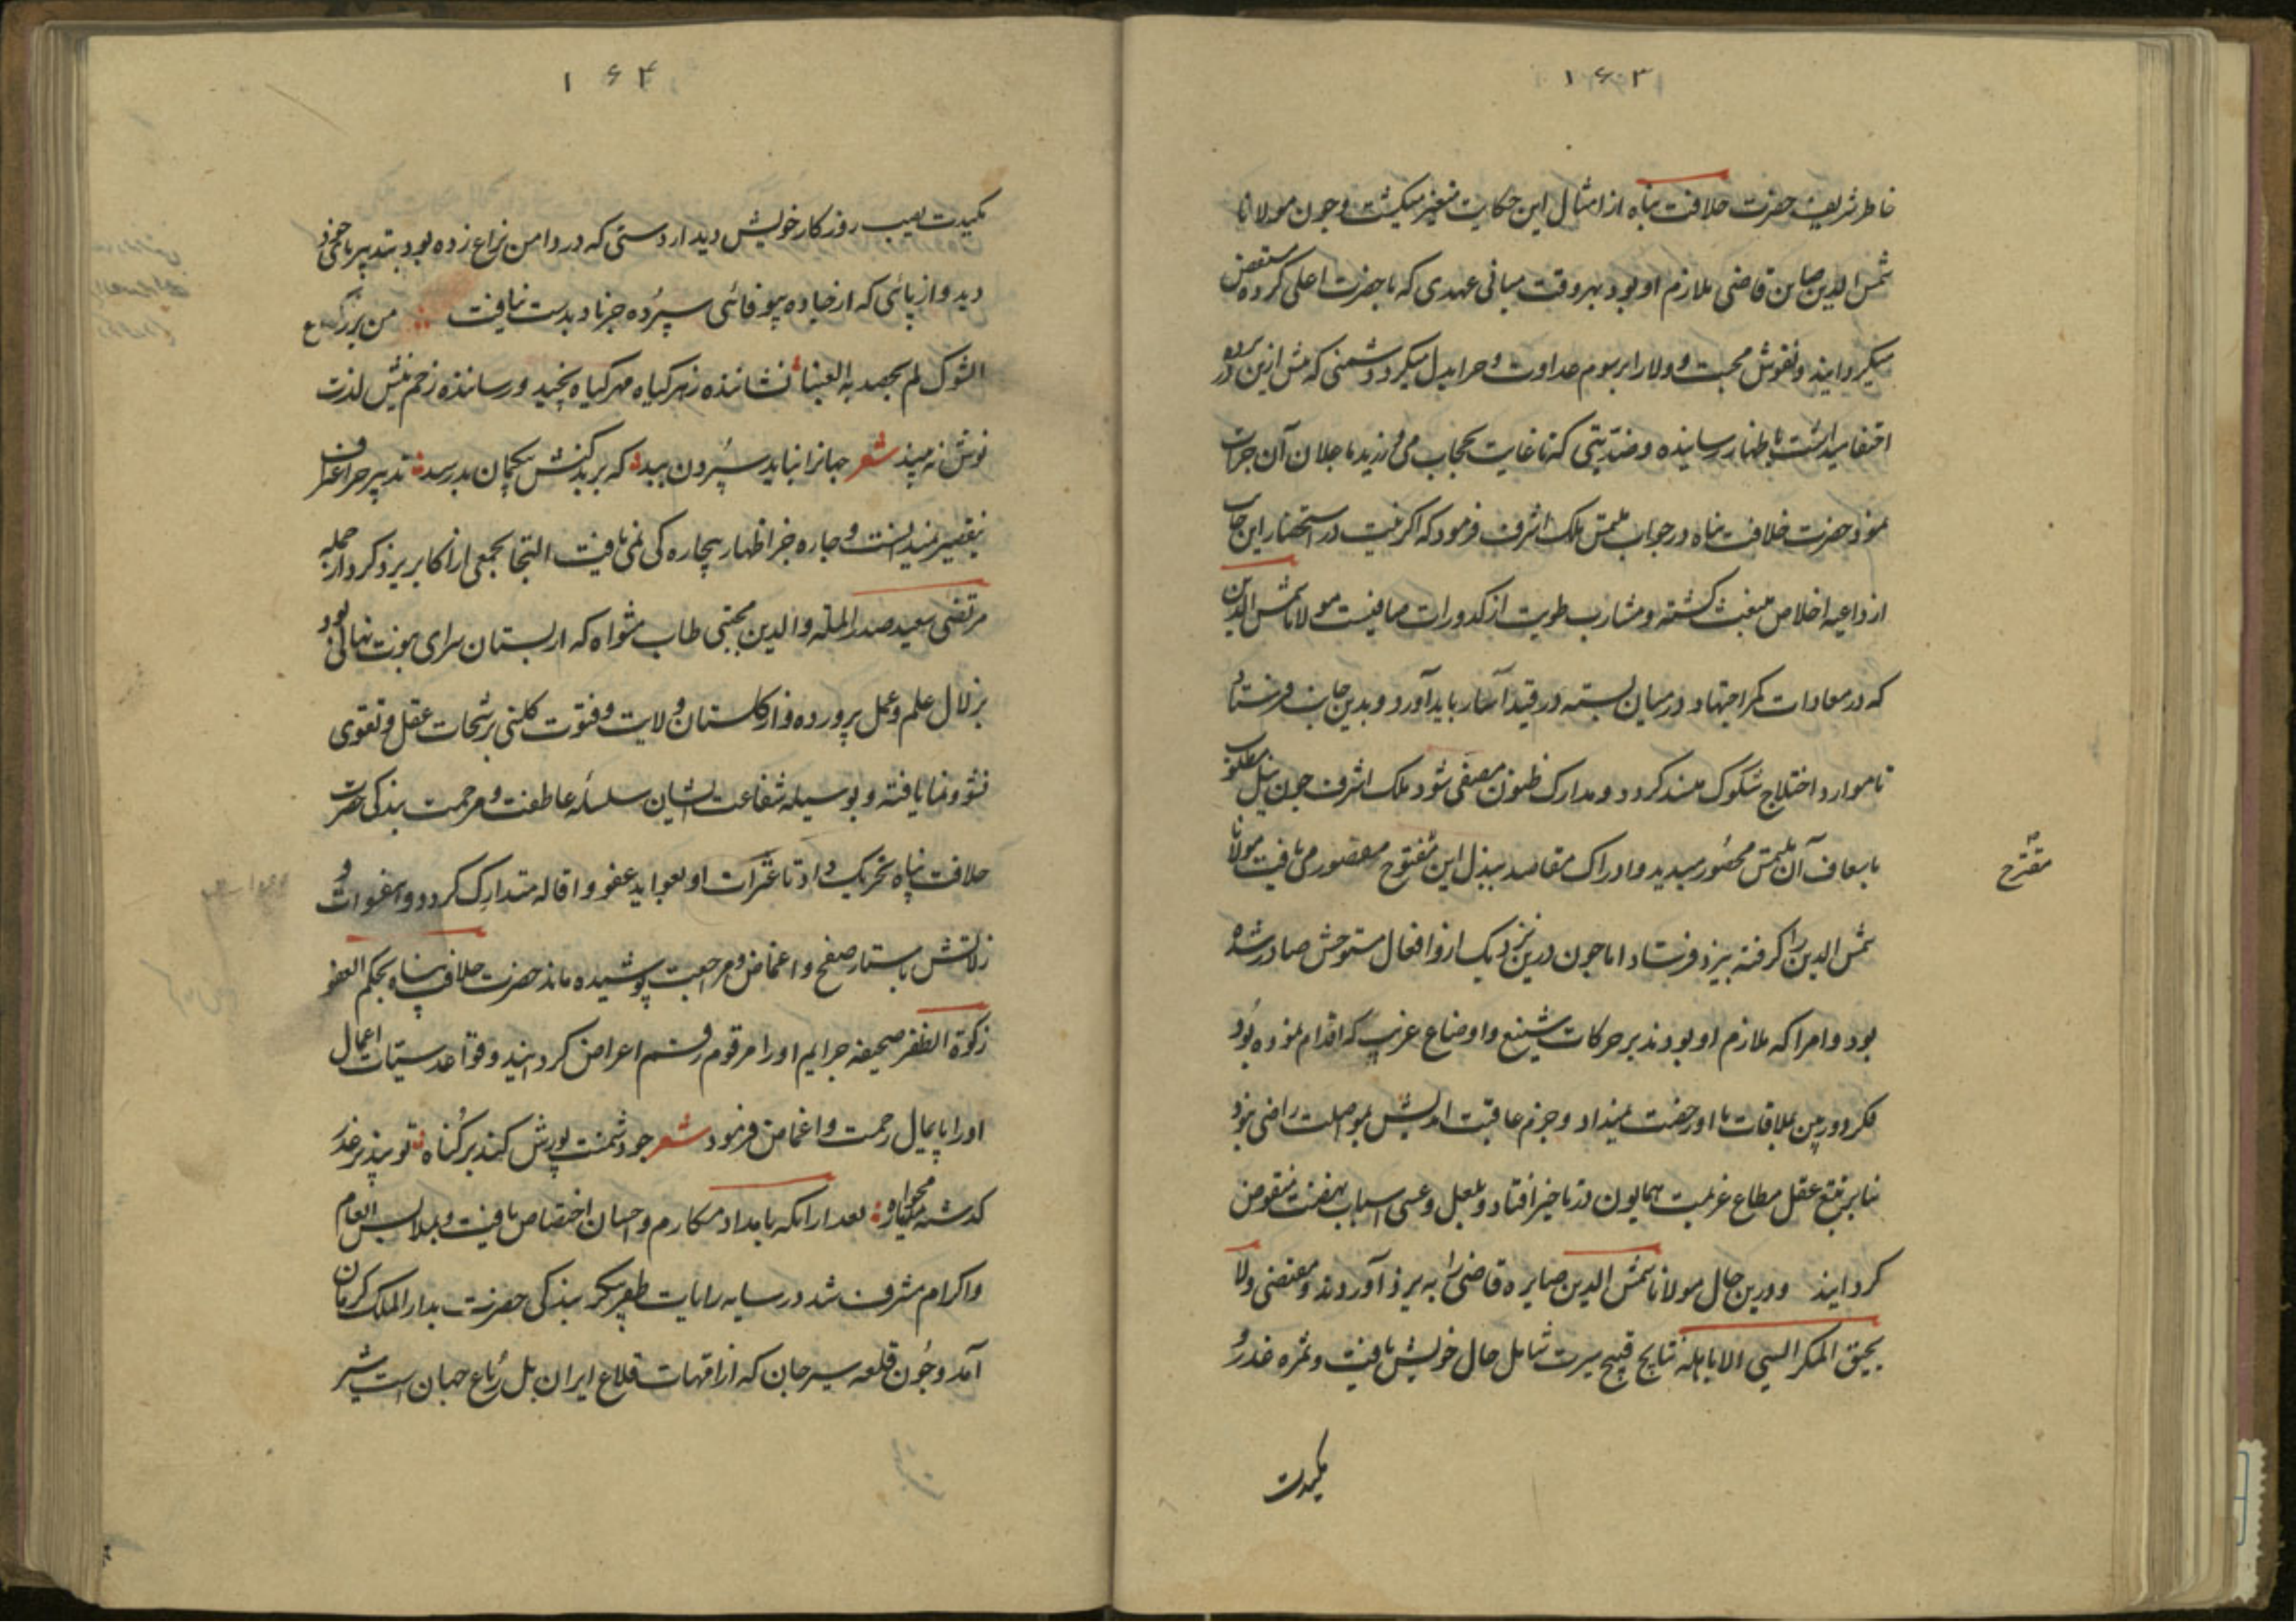 ۱۶۳
خاطر شریف حضرت خلافت پناه از امثال این حکایت متغیر میکشت و چون مولانا
شمس الدین صاین قاضی ملازم او بود بهر وقت مبانی عهدی که با حضرت اعلی کرده منتقض
میکردانید و نقوش محبت و ولا را برسوم عداوت و حرا بدل میکرد و دشمنی که پیش ازین در پرده
اختفا میداشت باظهار رسانیده و ضدیتی که تا غایت بحجاب می ورزید با جلان آن جرات
نمود حضرت خلافت پناه در جواب ملتمس ملک اشرف فرمود که اکر نیت در استحضار این جانب
از داعیه اخلاص منبعث کشته و مشارب طویت از کدورات صافیست مولانا شمس الدین
که در معادات کمر اجتهاد در میان بسته در قید آسار باید آورد و بدین جانب فرستاد
تا موارد اختلاج شکوک منسد کردد و مدارک ظنون مصفی شود ملک اشرف چون نیل مطلوب
باسعاف آن ملتمس محصور میدید و ادراک مقاصد ببذل این مفتوح مقصور می یافت مولانا
مقترح
شمس الدین را کرفته بیزد فرستاد اما چون درین نزدیک ازو افعال مستوحش صادر شده
بود و امرا که ملازم او بودند بر حرکات شنیع و اوضاع غریب که اقدام نموده بود
فکر دوربین بملاقات با او رخصت نمیداد و حزم عاقبت اندیش بمواصلت راضی نبود
بنا بر تتبع عقل مطاع عزیمت همایون در تاخیر افتاد و بلعل و عسی اسباب نهضت منقوض
کردانید و درین حال مولانا شمس الدین صایره قاضی را به یزد آوردند و مقتضی ولا
یحیق المکر السیی الا باهله نتایج قبیح سیرت شامل حال خویش یافت و ثمره غدر و
مکیدت
۱۶۴
مکیدت نصیب روزکار خویش دید از دستی که در دامن نزاع زده بود بتدبیر ناخوذ
دید و از پائی که از جاده بیوفائی سپرده جز باد بدست نیافت من یزرع
الشوک لم یحصد به العنبا نشاننده زهر کیاه مهر کیاه نچید و رساننده زخم نیش لذت
نوش نه بیند شعر جهانرا نباید سپردن ببد که بر بد کنش بیکمان بد رسد تدبیر جز اعتراف
بتقصیر نمیدانست و چاره جز اظهار بیچاره کی نمی یافت التجا بجمعی از اکابر یزد کرد از جمله
مرتضی سعید صدر المله والدین مجتبی طاب مثواه که از بستان سرای نبوت نهالی بود
بزلال علم و عمل پرورده و از کلستان ولایت و فتوت کلبنی برشحات عقل و تقوی
نشو و نما یافته و بوسیله شفاعت ایشان سلسله عاطفت و مرحمت بندکی حضرت
خلافت پناه تحریک داد تا عثرات او بعواید عفو و اقاله متدارک کردد و هفوات و
زلاتش باستار صفح و اغماض و مرحمت پوشیده ماند حضرت خلافت پناه بحکم العفو
زکوة الظفر صحیفه جرایم او را مرقوم رقم اعراض کردانید و قواعد سیئات اعمال
او را پایمال رحمت و اغماض فرمود شعر چو دشمنت پوزش کند بر کناه تو بپذیر عذر
کذشته مخواه بعد ازانکه بامداد مکارم و احسان اختصاص یافت و بملابس انعام
و اکرام مشرف شد در سایه رایات ظفر پیکر بندکی حضرت بدار الملک کرمان
آمد و چون قلعه سیرجان که از امهات قلاع ایران بل رباع جهان است بیشتر